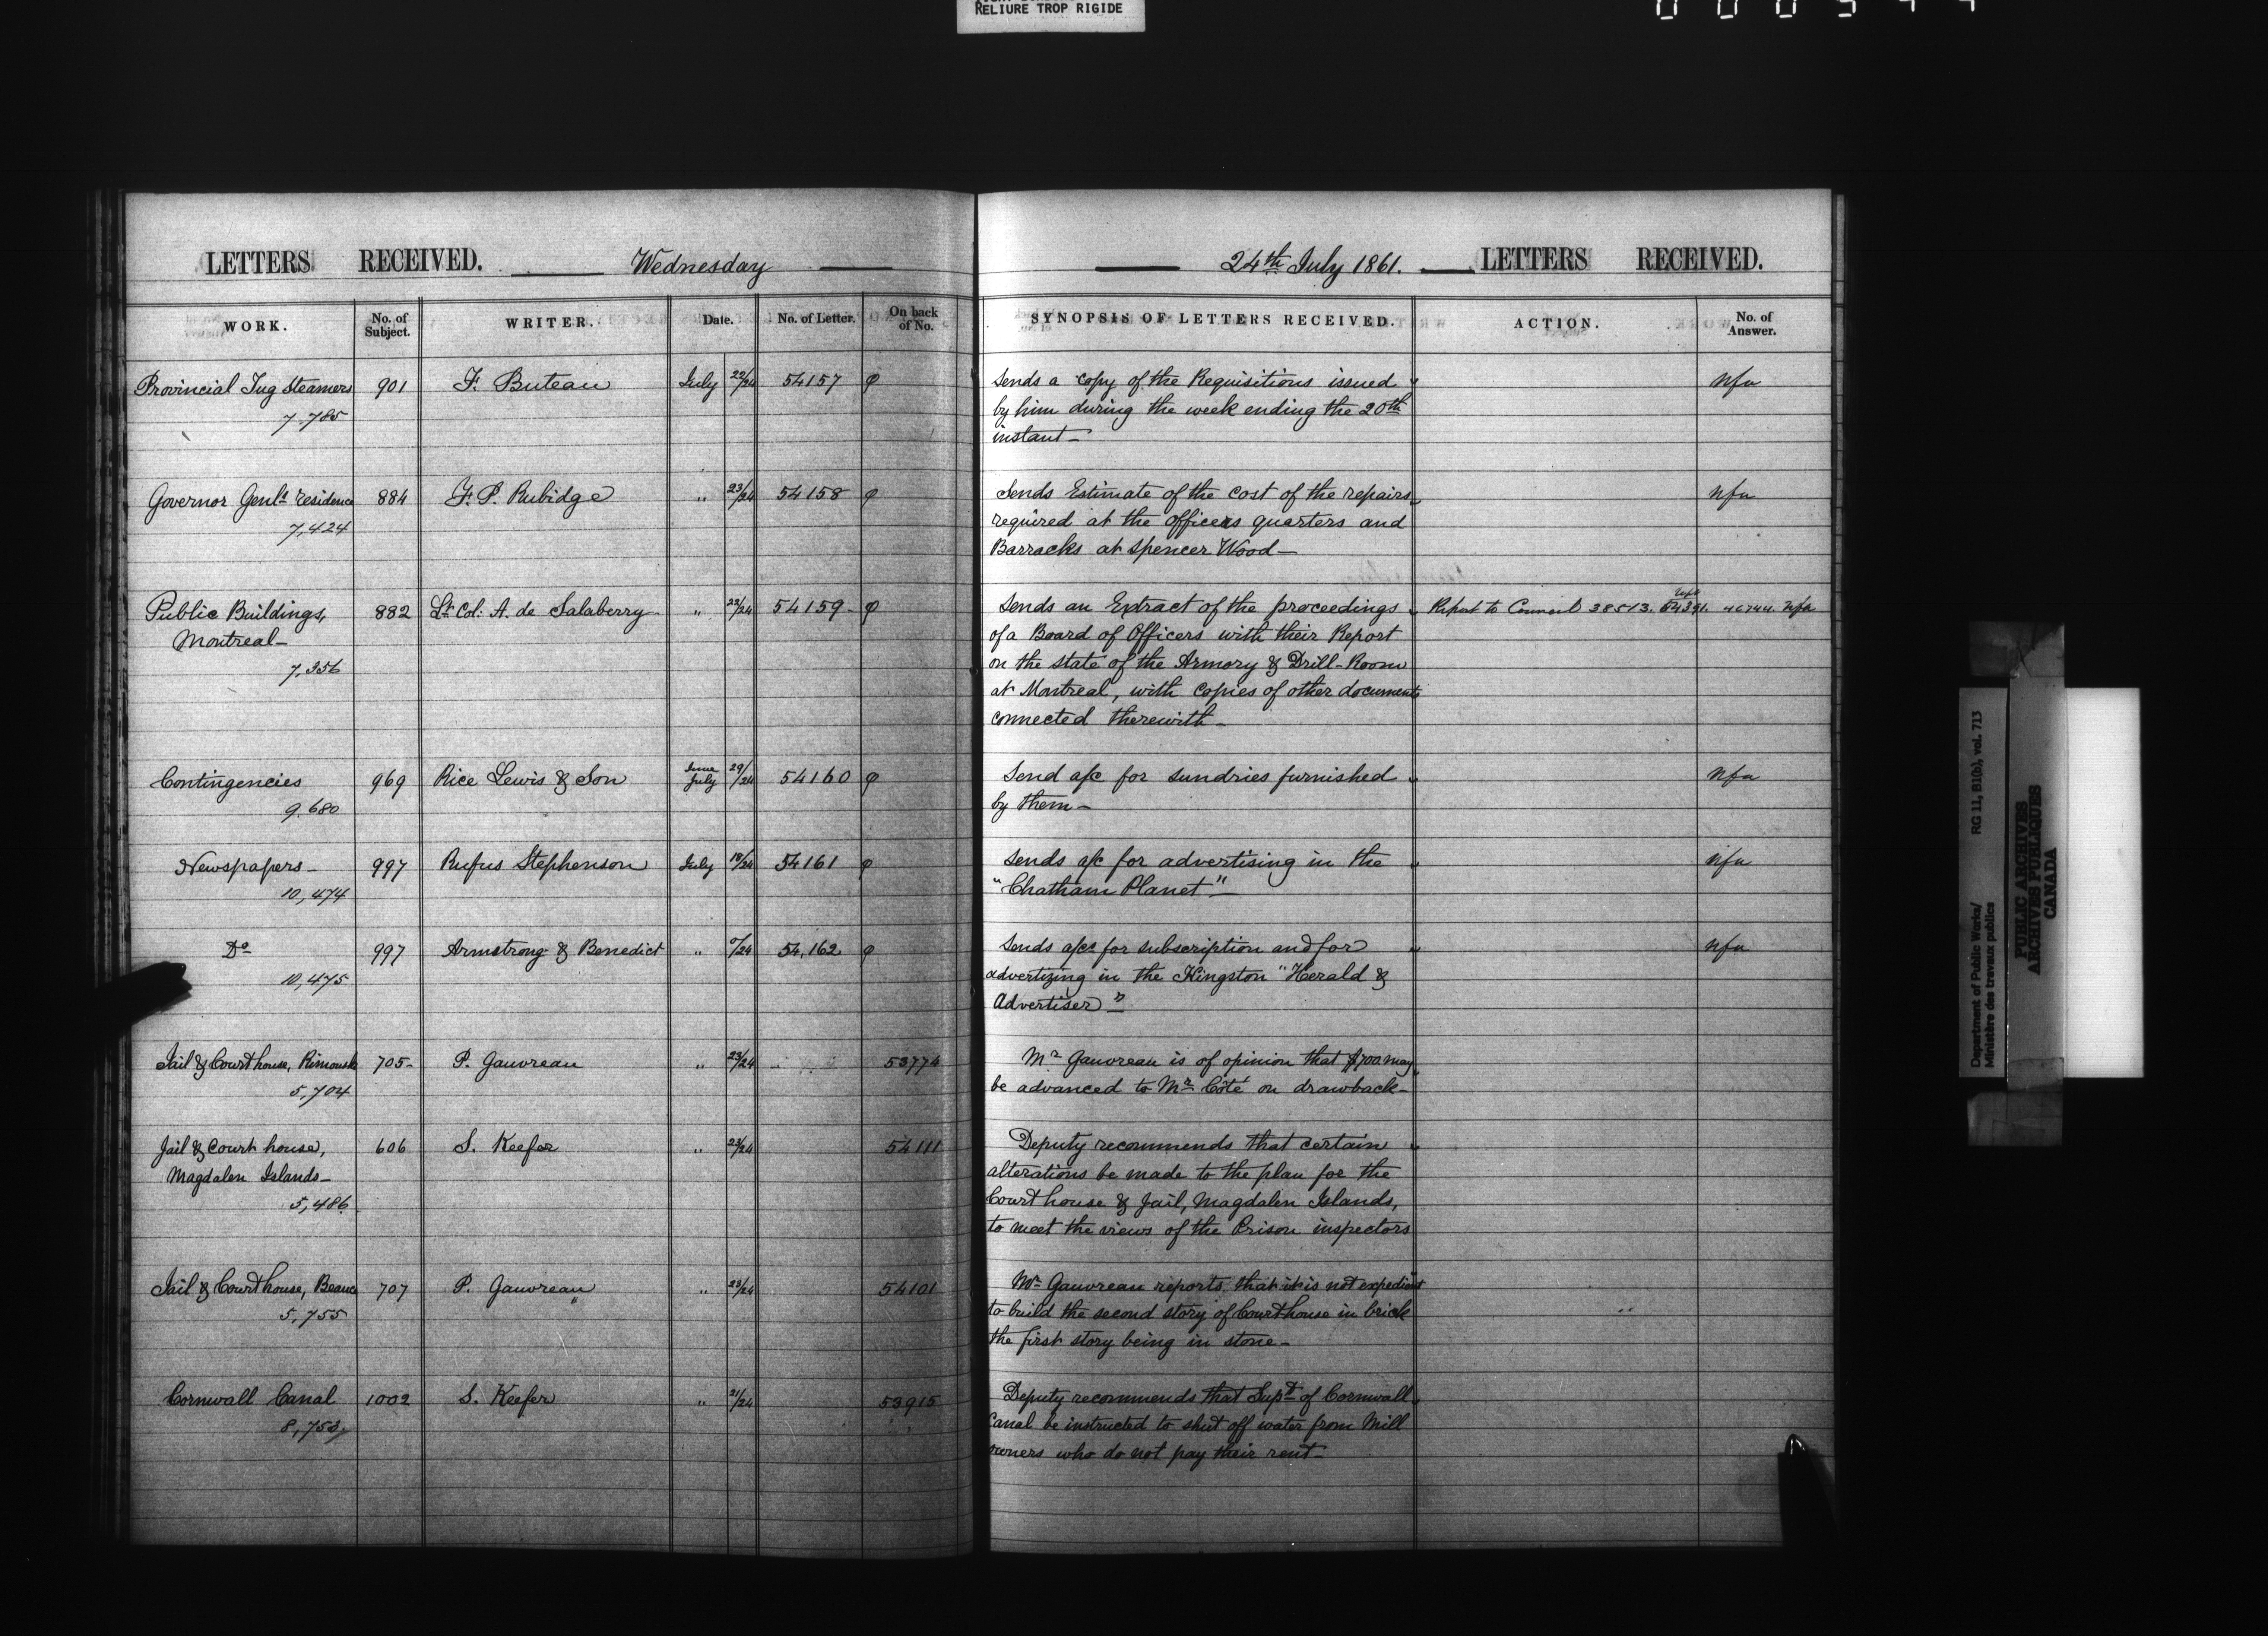 RELIURE TROP RIGIDE
LETTERS RECEIVED. Wednesday
24th July 1861. LETTERS RECEIVED.
WORK. No. of Subject. WRITER. Date. No. of Letter. On back of No. SYNOPSIS OF LETTERS RECEIVED. ACTION. No. of Answer.
Provincial Tug Steamers 901 F. Buteau July 22/24 54157 φ Sends a copy of the Requisitions issued " nfa
7.785 by him during the week ending the 20th
instant—
Governor Genls residence 884 F. P. Rubidge " 23/24 54158 φ Sends Estimate of the cost of the repairs " nfa
7,424 required at the officers quarters and
Barracks at Spencer Wood—
Public Buildings, 882 Lt Col: A. de Salaberry " 22/24 54159- φ Sends an Extract of the proceedings " Report to Council 38513. 54391. 46744. nfa
Montreal— of a Board of Officers with their Report
7,356 on the state of the Armory & Drill-Room
at Montreal, with copies of other documents
connected therewith—
Contingencies 969 Rice Lewis & Son June July 29/24 54160 φ Send a/c for sundries furnished " nfa
9.680 by them—
Newspapers— 997 Rufus Stephenson July 18/24 54161 φ Sends a/c for advertising in the " nfa
10,474 "Chatham Planet"—
Do 997 Armstrong & Benedict " 0/24 54,162 φ Sends a/cs for subscription and for " nfa
10,475 advertizing in the Kingston "Herald &
Advertiser"—
Jail & Court house, Rimouski 705- P. Gauvreau " 23/24 53774 Mr Gauvreau is of opinion that $700 may "
5,704 be advanced to Mr Côté on drawback—
Jail & Court house, 606 S. Keefer " 23/24 54111 Deputy recommends that certain "
Magdalen Islands— alterations be made to the plan for the
5,486 Court house & Jail, Magdalen Islands,
to meet the views of the Prison inspectors
Jail & Court house, Beauce 707 P. Gauvreau " 23/24 54101 Mr Gauvreau reports that it is not expedient
5,755 to build the second story of Court house in brick
the first story being in stone—
Cornwall Canal 1002 S. Keefer " 21/24 53915 Deputy recommends that Supt of Cornwall "
8,753 Canal be instructed to shut off water from Mill
owners who do not pay their rent—
Department of Public Works/ RG 11, B1(b), vol. 713
Ministère des travaux publics
PUBLIC ARCHIVES
ARCHIVES PUBLIQUES
CANADA